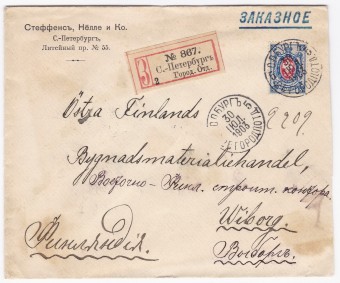 Стеффенсъ, Нёлле и Ко.
С.-Петербургъ.
Литейный пр. № 55.
ЗАКАЗНОЕ
З.
№ 867.
С.-Петербургъ
Город. Отд.
2
С.П.БУРГЪ
30
1903
Östra Finlands
9209.
Bygnadsmaterialiehandel,
Восточно-Финл. строит. контора.
Wiborg.
Финляндія.
Выборгъ.